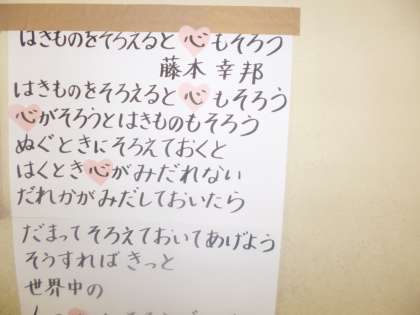 はきものをそろえると心もそろう
藤木幸邦
はきものをそろえると心もそろう
心がそろうとはきものもそろう
ぬぐときにそろえておくと
はくとき心がみだれない
だれかがみだしておいたら
だまってそろえておいてあげよう
そうすればきっと
世界中の